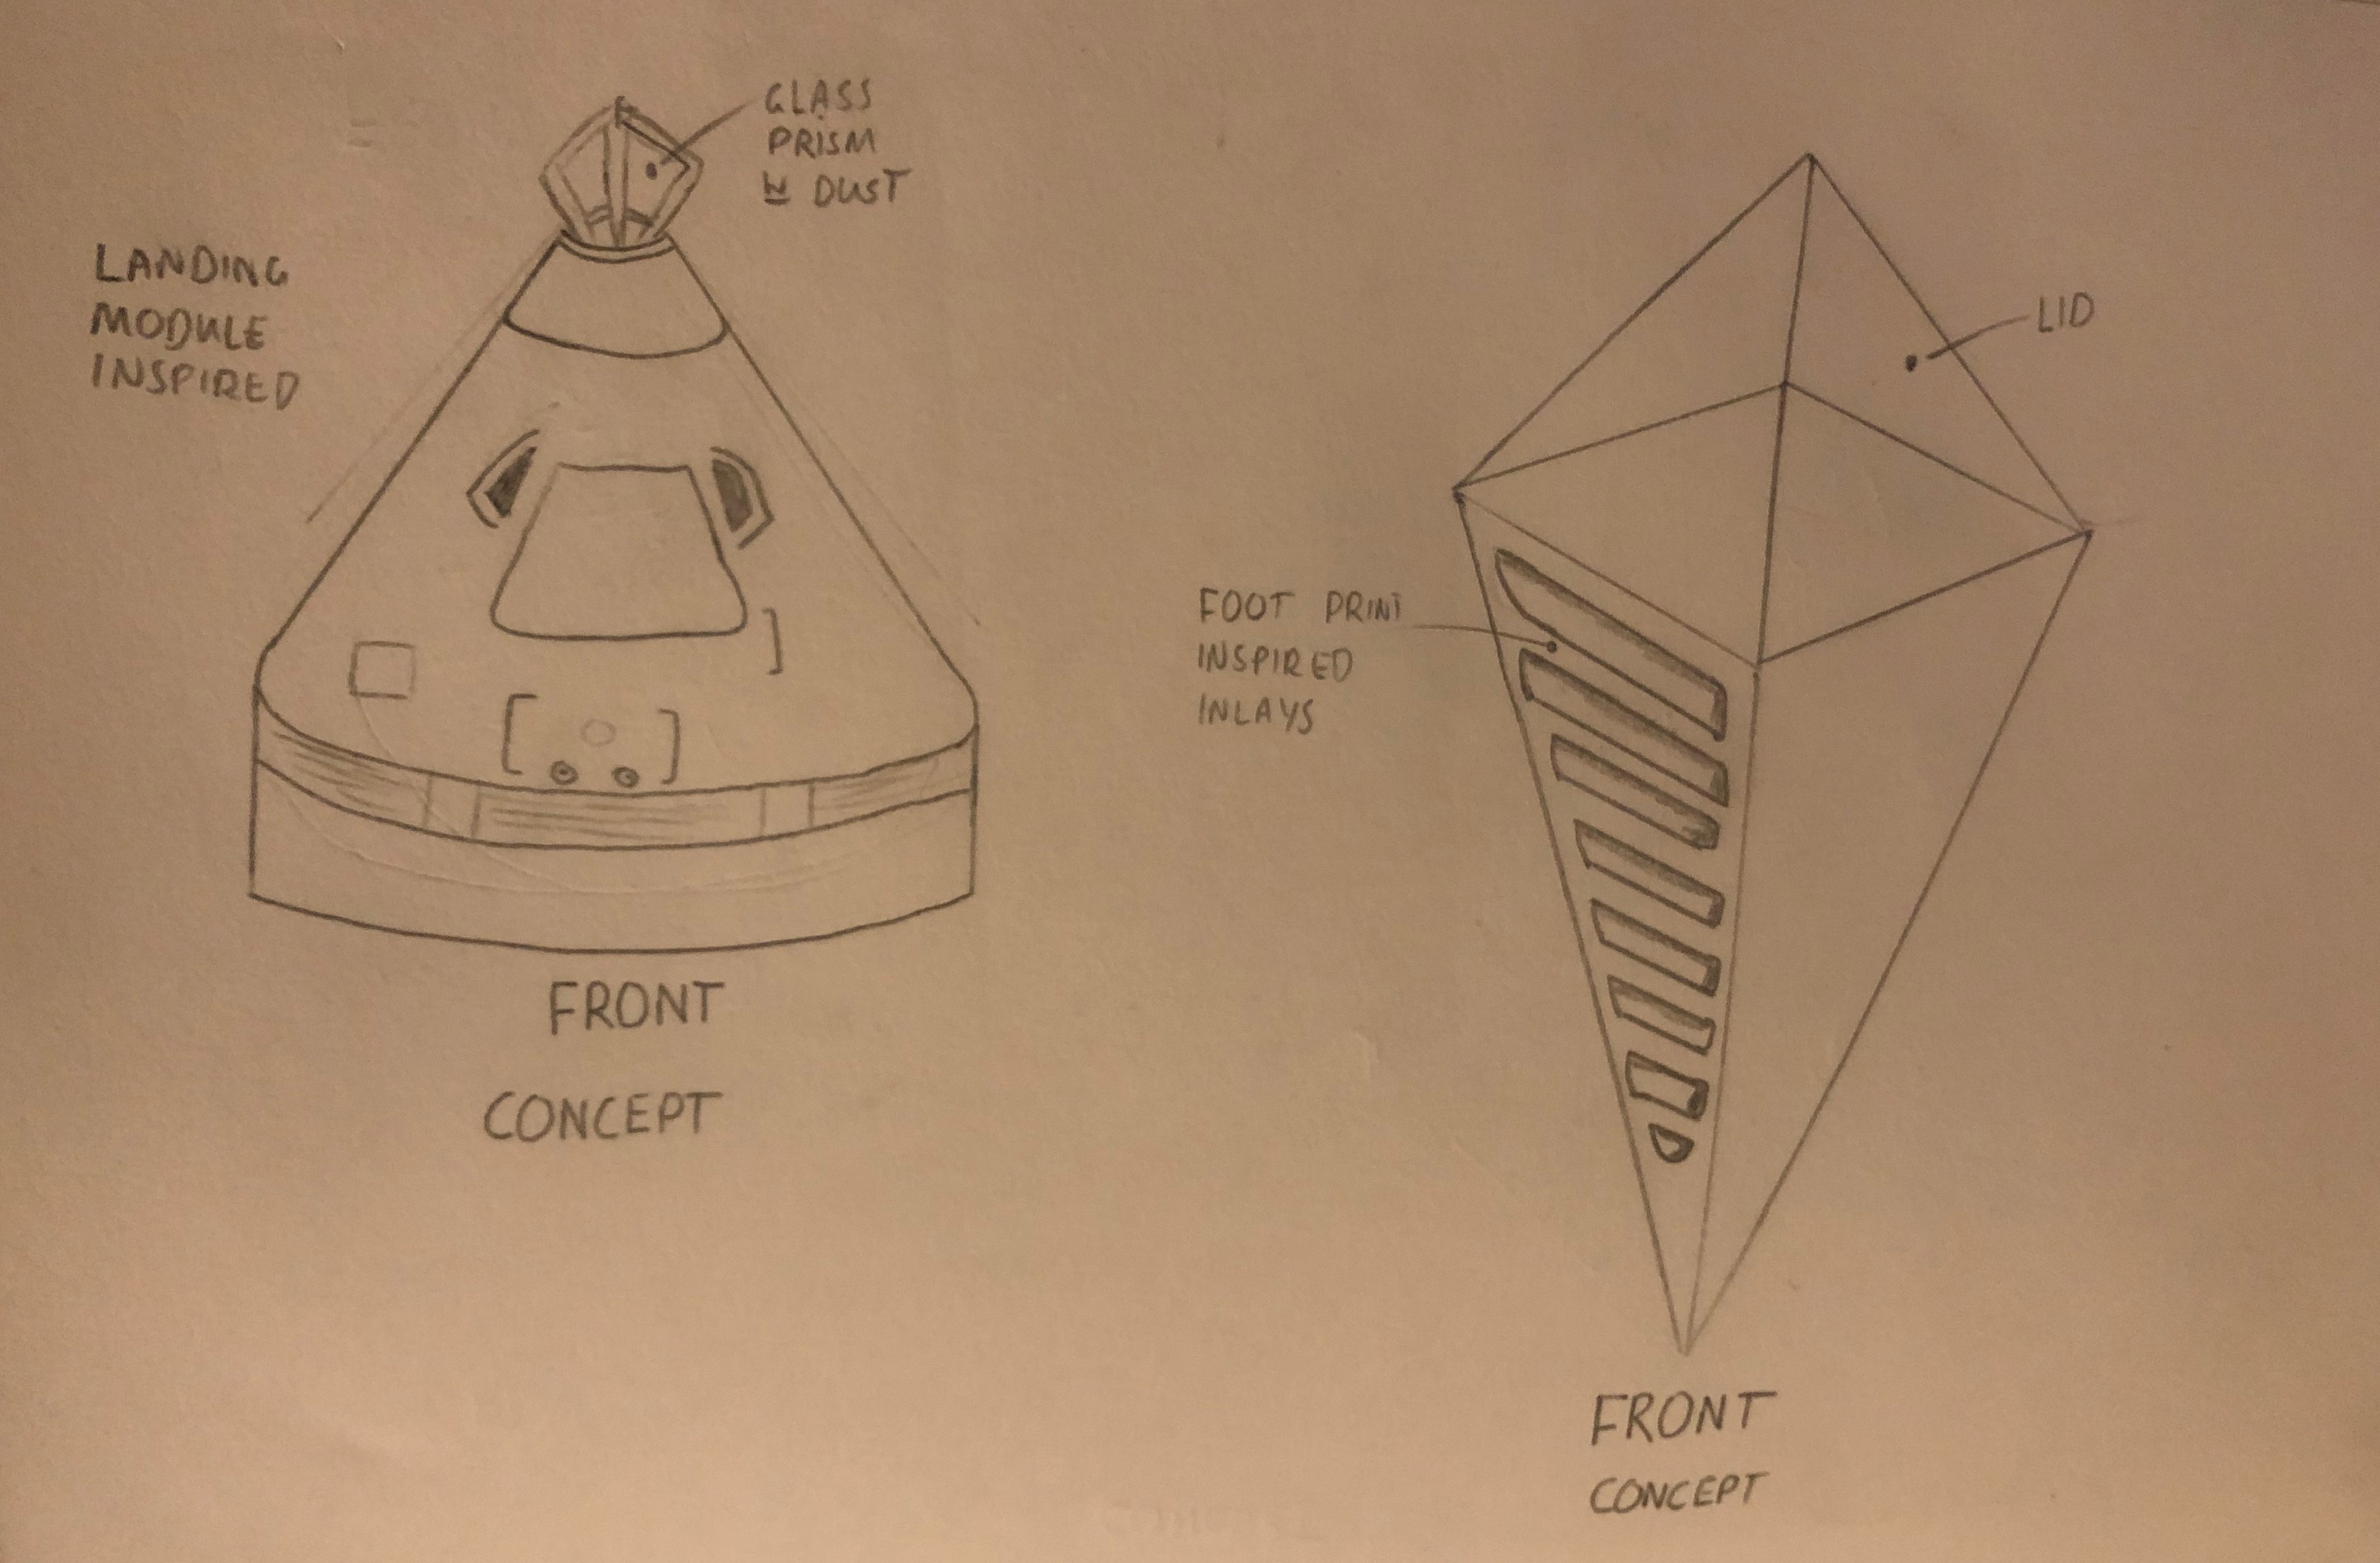 GLASS
PRISM
W DUST
LANDING
MODULE
INSPIRED
FRONT
CONCEPT
LID
FOOT PRINT
INSPIRED
INLAYS
FRONT
CONCEPT